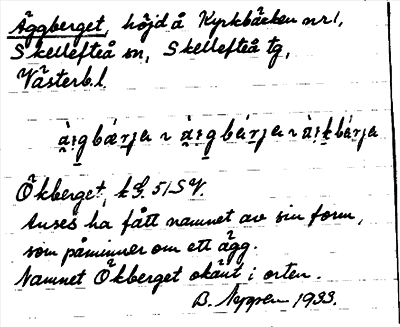 Äggberget, höjd å Kyrkbäcken nr 1,
Skellefteå sn, Skellefteå tg,
Västerb. l.
ài̯g bǽrja ~ ài̯g bérja ~ ài̯k bárja
Ökberget, k G. 51 SV.
Anses ha fått namnet av sin form,
som påminner om ett ägg.
Namnet Ökberget okänt i orten.
B. 1933.